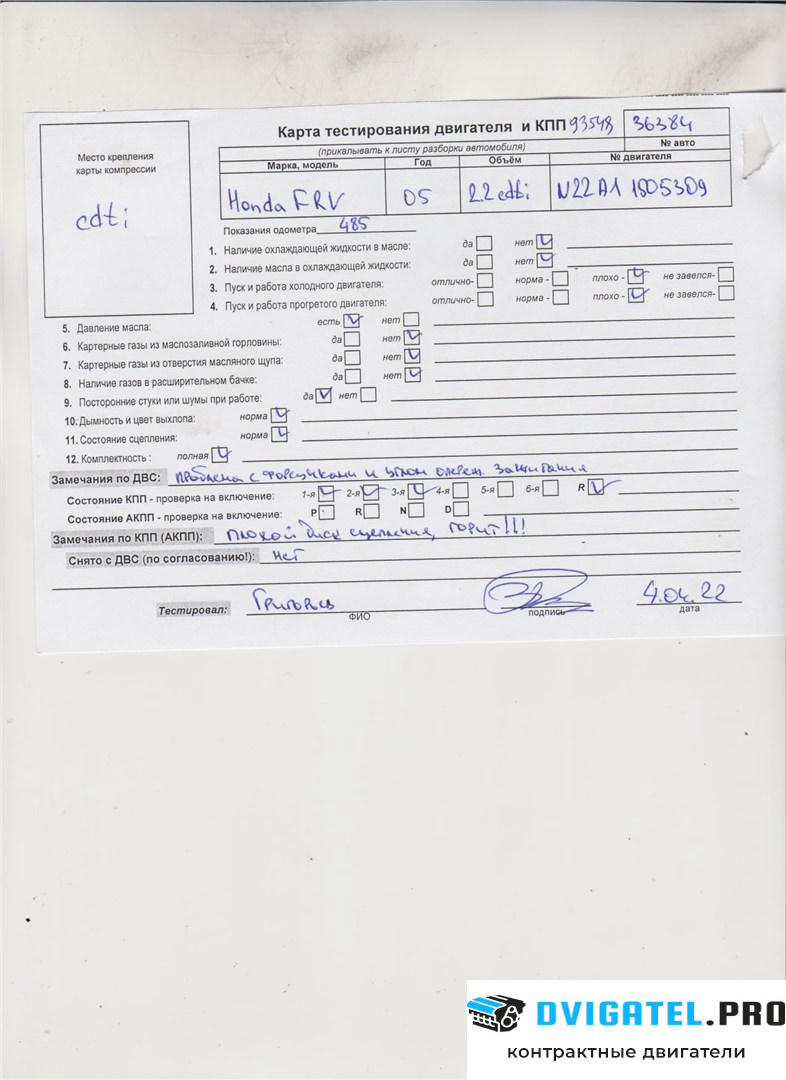 Карта тестирования двигателя и КПП 93548 36384
(прикалывать к листу разборки автомобиля) № авто
Место крепления
карты компрессии
cdti
Марка, модель Год Объём № двигателя
Honda FRV 05 2.2 cdti N22A1 1505309
Показания одометра 485
1. Наличие охлаждающей жидкости в масле: да нет
2. Наличие масла в охлаждающей жидкости: да нет
3. Пуск и работа холодного двигателя: отлично- норма - плохо - не завелся-
4. Пуск и работа прогретого двигателя: отлично- норма - плохо - не завелся-
5. Давление масла: есть нет
6. Картерные газы из маслозаливной горловины: да нет
7. Картерные газы из отверстия масляного щупа: да нет
8. Наличие газов в расширительном бачке: да нет
9. Посторонние стуки или шумы при работе: да нет
10. Дымность и цвет выхлопа: норма
11. Состояние сцепления: норма
12. Комплектность : полная
Замечания по ДВС: проблема с форсунками и углом опереж. зажигания
Состояние КПП - проверка на включение: 1-я 2-я 3-я 4-я 5-я 6-я R
Состояние АКПП - проверка на включение: P R N D
Замечания по КПП (АКПП): плохой диск сцепления, горит!!!
Снято с ДВС (по согласованию!): нет
Тестировал: 4.04.22
ФИО подпись дата
DVIGATEL.PRO
контрактные двигатели